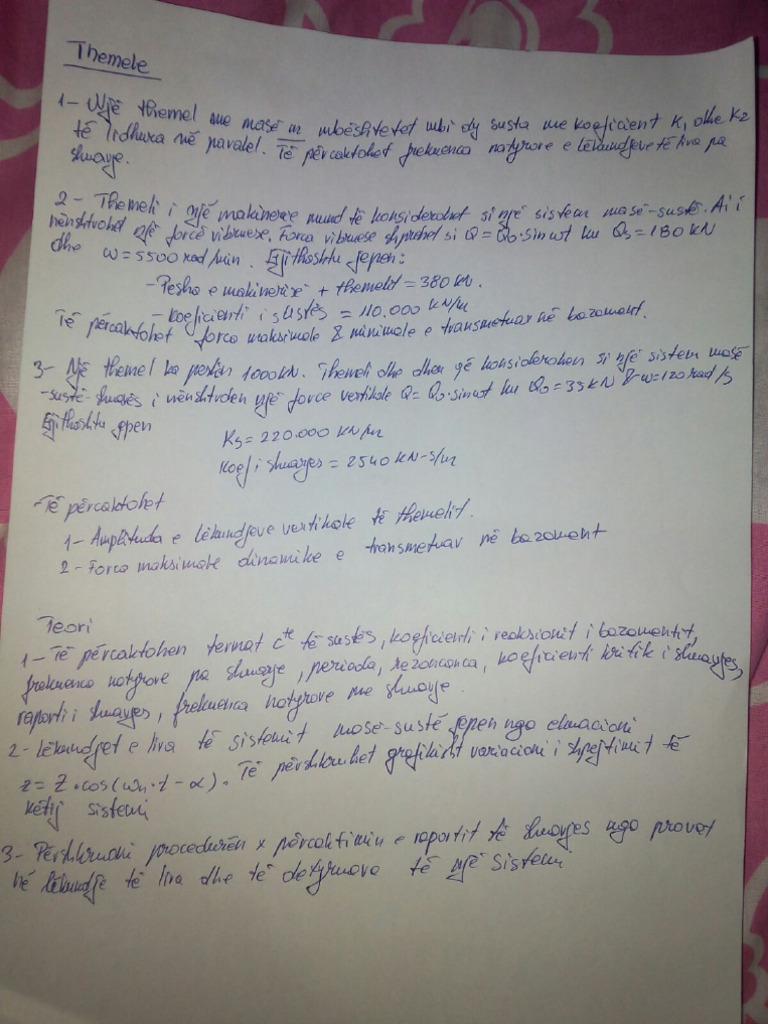 Themele
1- Një themel me masë m mbështetet mbi dy susta me koeficient K1 dhe K2
të lidhura në paralel. Të përcaktohet frekuenca natyrore e lëkundjeve të lira pa
shuarje.
2- Themeli i një makinerie mund të konsiderohet si një sistem masë-sustë. Ai i
nënshtrohet një force vibruese. Forca vibruese shprehet si Q = Q0·sinωt ku Q0 = 180 KN
dhe ω = 5500 rad/min. Gjithashtu jepen:
- Pesha e makinerisë + themelit = 380 KN.
- Koeficienti i sustës = 110.000 KN/m
Të përcaktohet forca maksimale & minimale e transmetuar në bazament.
3- Një themel ka peshën 1000KN. Themeli dhe dheu që konsiderohen si një sistem masë
-sustë-shuarës i nënshtrohen një force vertikale Q = Q0·sinωt ku Q0 = 33 KN & ω = 120 rad/s
Gjithashtu jepen
Ks = 220.000 KN/m
Koef i shuarjes = 2540 KN-s/m
-Të përcaktohet
1- Amplituda e lëkundjeve vertikale të themelit.
2- Forca maksimale dinamike e transmetuar në bazament
Teori
1- Të përcaktohen termat cte të sustës, koeficienti i reaksionit i bazamentit,
frekuenca natyrore pa shuarje, perioda, rezonanca, koeficienti kritik i shuarjes,
raporti i shuarjes, frekuenca natyrore me shuarje.
2- Lëkundjet e lira të sistemit masë-sustë jepen nga ekuacioni
z = Z·cos(ωn·t - α). Të përshkruhet grafikisht variacioni i shpejtimit të
këtij sistemi
3- Përshkruani procedurën x përcaktimin e raportit të shuarjes nga provat
në lëkundje të lira dhe të detyruara të një sistemi